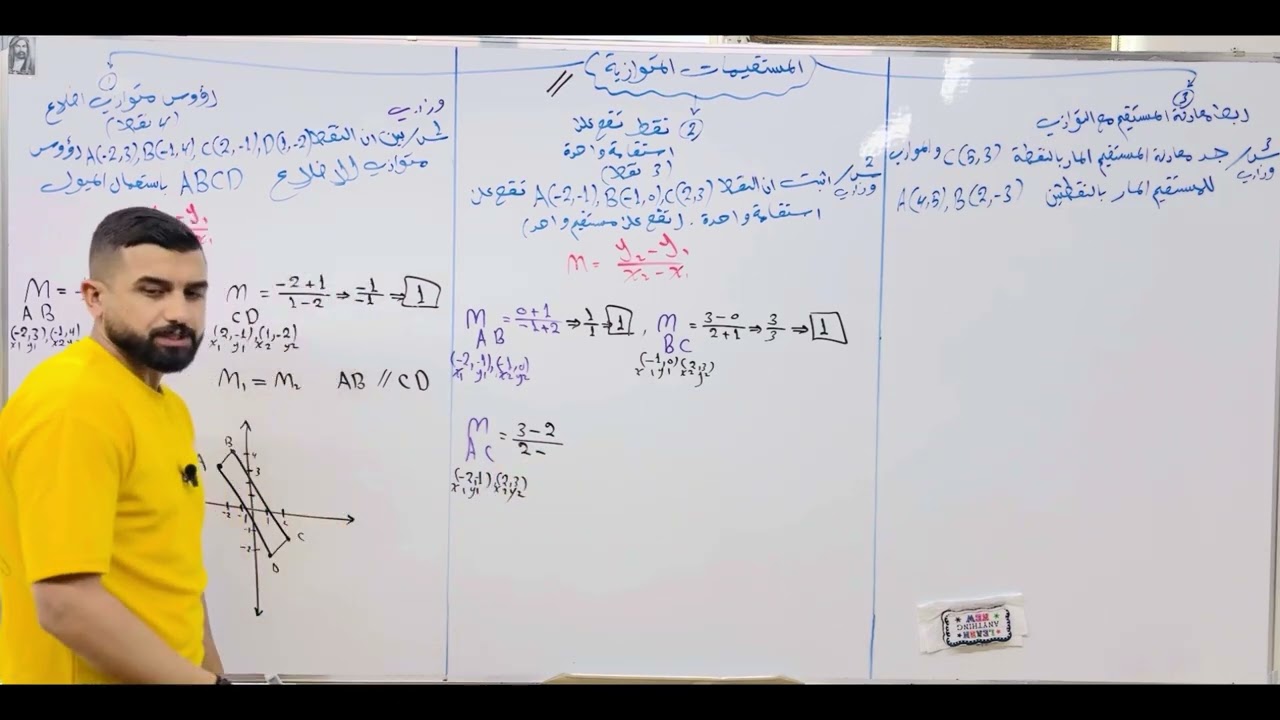 المستقيمات المتوازية
①
رؤوس متوازي اضلاع
(4 نقط)
وزاري
س1/ بين ان النقط A(-2,3), B(-1,4), C(2,-1), D(1,-2) رؤوس
متوازي الاضلاع ABCD باستعمال الميول
M =
AB
(-2,3),(-1,4)
x₁ y₁ x₂ y₂
M = -2+1/1-2 ⇒ -1/-1 ⇒ 1
CD
(2,-1),(1,-2)
x₁ y₁ x₂ y₂
M₁ = M₂ AB // CD
A
B
C
D
4
3
-2 -1 1 2
-1
-2
②
نقط تقع على
استقامة واحدة
(3 نقط)
س2/ اثبت ان النقط A(-2,-1), B(-1,0), C(2,3) تقع على
وزاري
استقامة واحدة. (تقع على مستقيم واحد)
M = y₂-y₁/x₂-x₁
M = 0+1/-1+2 ⇒ 1/1 ⇒ 1 , M = 3-0/2+1 ⇒ 3/3 ⇒ 1
AB BC
(-2,-1),(-1,0) (-1,0)(2,3)
x₁ y₁ x₂ y₂ x₁ y₁ x₂ y₂
M = 3-2/2-
AC
(-2,-1),(2,3)
x₁ y₁ x₂ y₂
③
ايجاد معادلة المستقيم مع التوازي
س3/ جد معادلة المستقيم المار بالنقطة C(5,3) والموازي
وزاري
للمستقيم المار بالنقطتين A(4,5), B(2,-3)
LEARN
ANYTHING
NEW